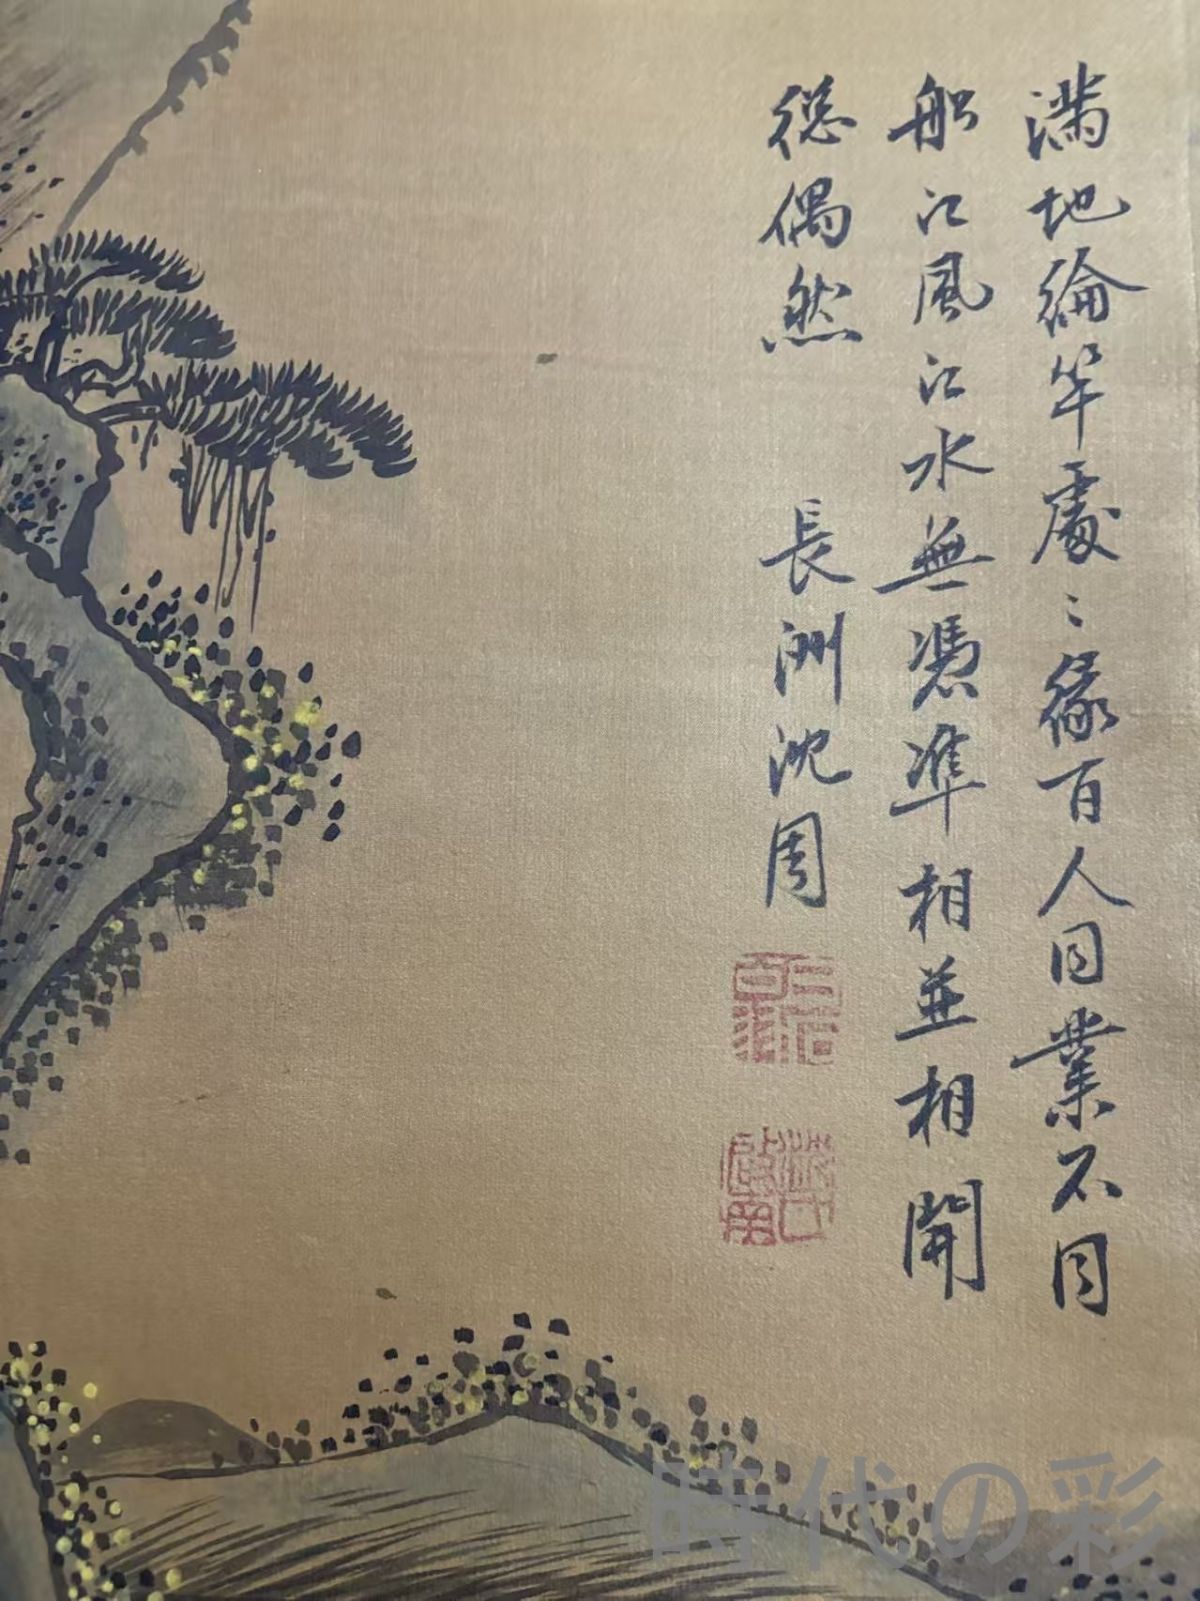 滿地綸竿處〻緣百人同業不同
船江風江水無憑準相並相開
總偶然　長洲沈周
啟南
時代の彩